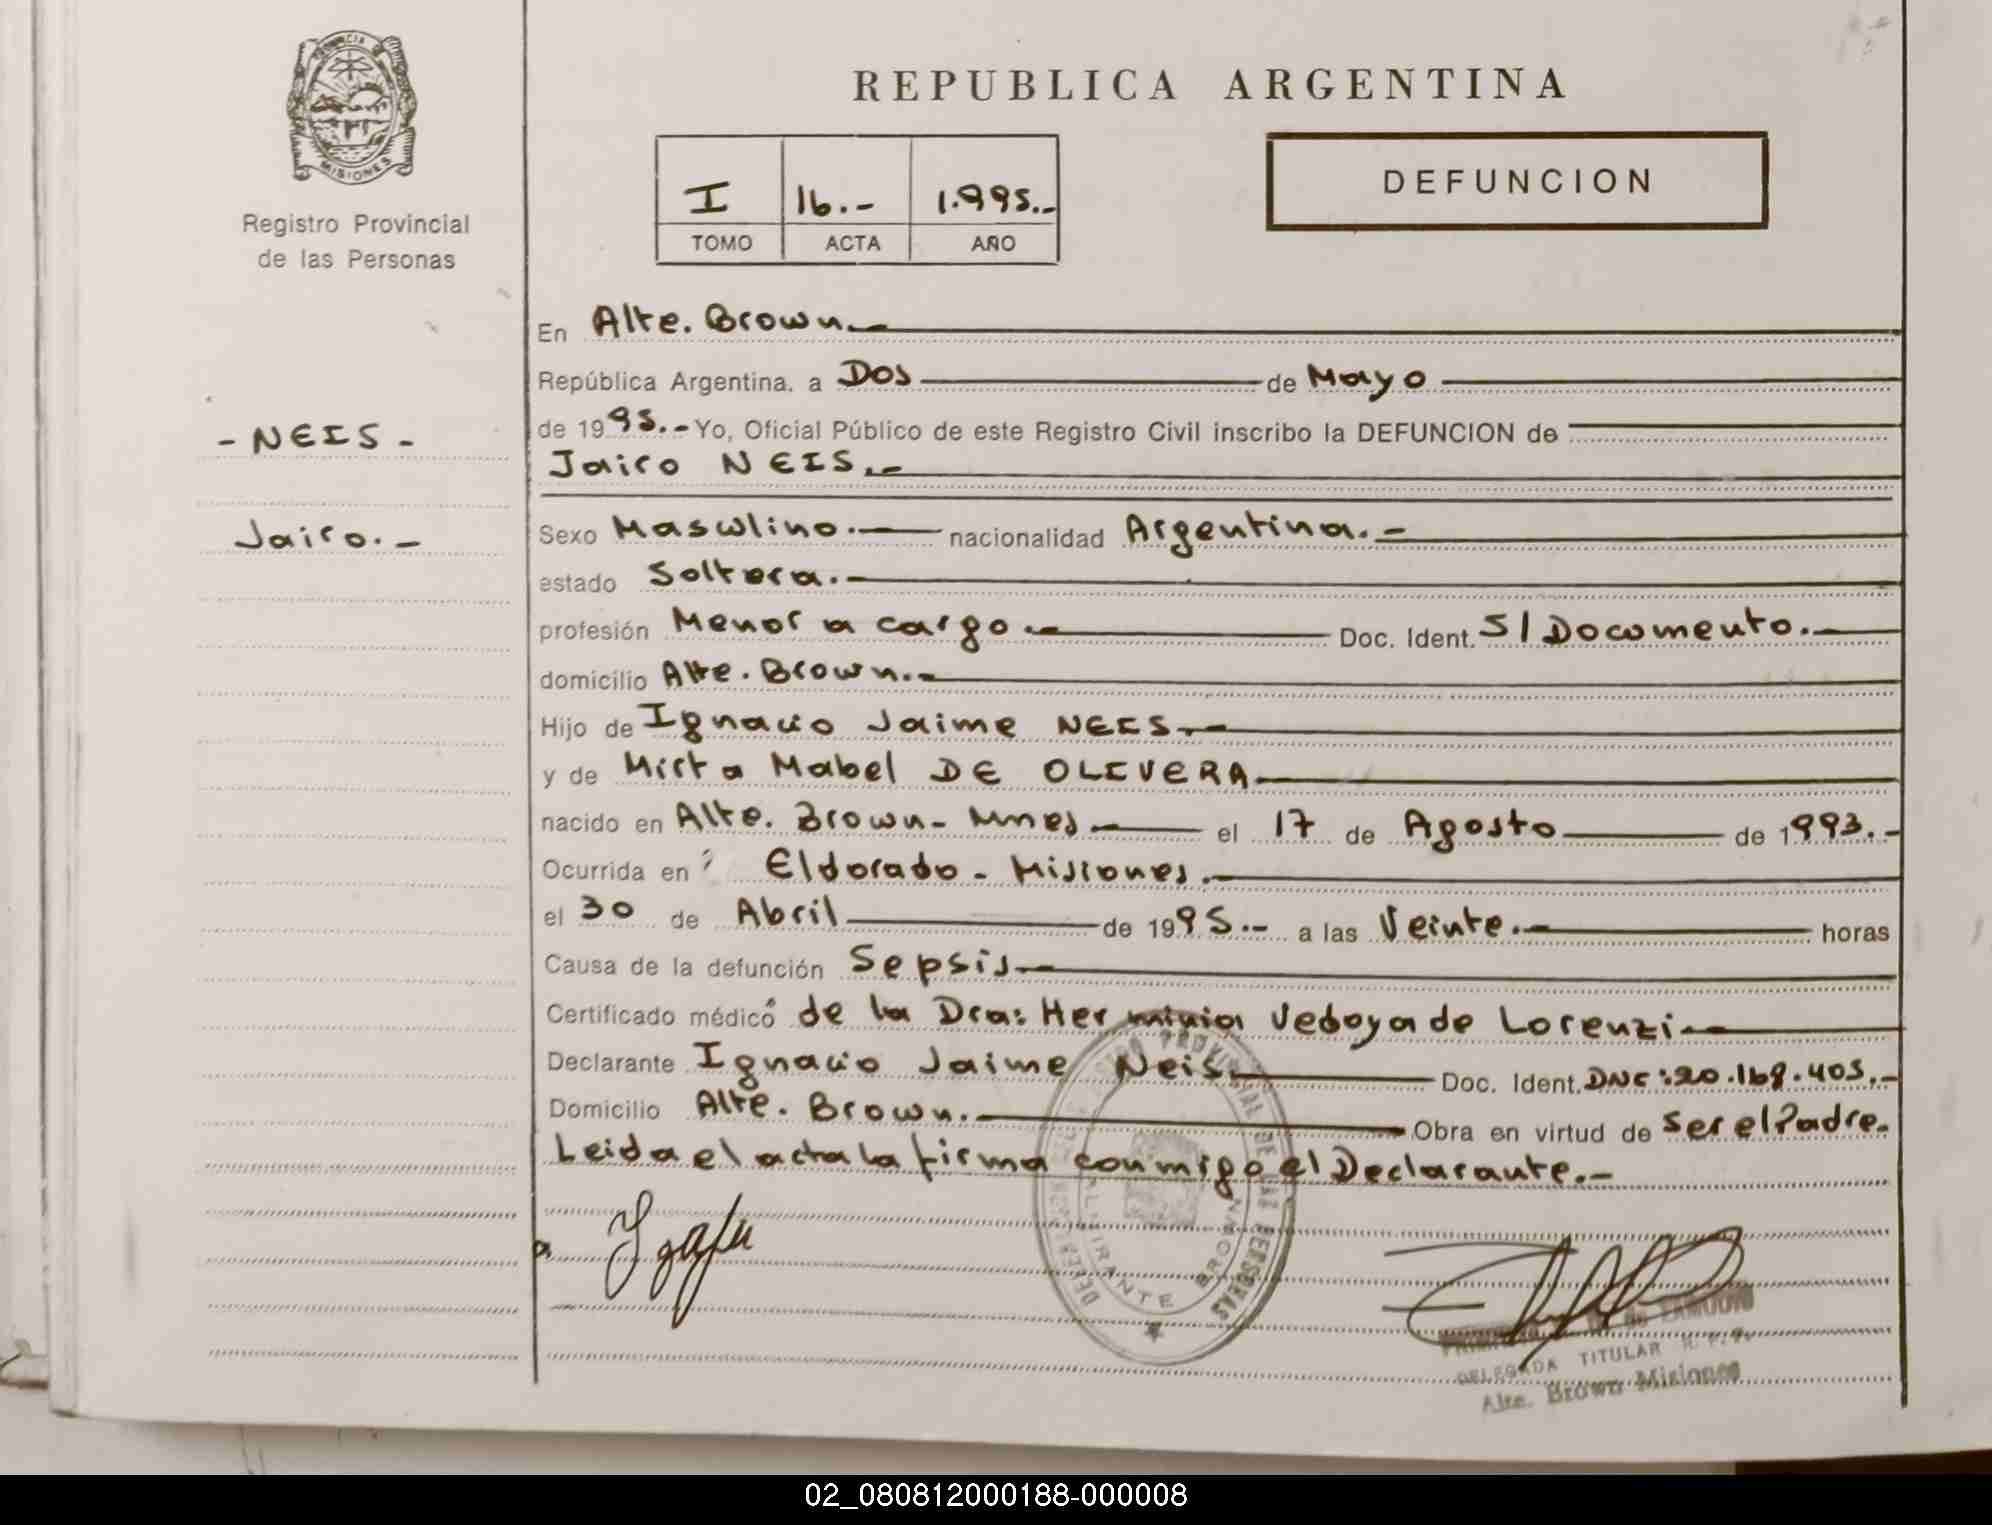 PROVINCIA
MISIONES
Registro Provincial
de las Personas
REPUBLICA ARGENTINA
I 16.- 1.995.-
TOMO ACTA AÑO
DEFUNCION
- NEIS -
Jairo.-
En Alte. Brown.-
República Argentina, a Dos de Mayo
de 1995.- Yo, Oficial Público de este Registro Civil inscribo la DEFUNCION de
Jairo NEIS.-
Sexo Masculino.- nacionalidad Argentina.-
estado Soltera.-
profesión Menor a cargo.- Doc. Ident. S/Documento.-
domicilio Alte. Brown.-
Hijo de Ignacio Jaime NEIS.-
y de Mirta Mabel DE OLIVERA
nacido en Alte. Brown- Mnes el 17 de Agosto de 1993.-
Ocurrida en Eldorado - Misiones.-
el 30 de Abril de 1995.- a las Veinte.- horas
Causa de la defunción Sepsis
Certificado médico de la Dra: Herminia Vedoya de Lorenzi.-
Declarante Ignacio Jaime Neis.- Doc. Ident. DNI:20.169.405.-
Domicilio Alte. Brown.- Obra en virtud de Ser el Padre.
Leida el acta la firma conmigo el Declarante.-
PROVINCIAL DE LAS PERSONAS
ALMIRANTE BROWN
de ZAMUDIO
DELEGADA TITULAR R.P.P.
Alte. Brown Misiones
02_080812000188-000008